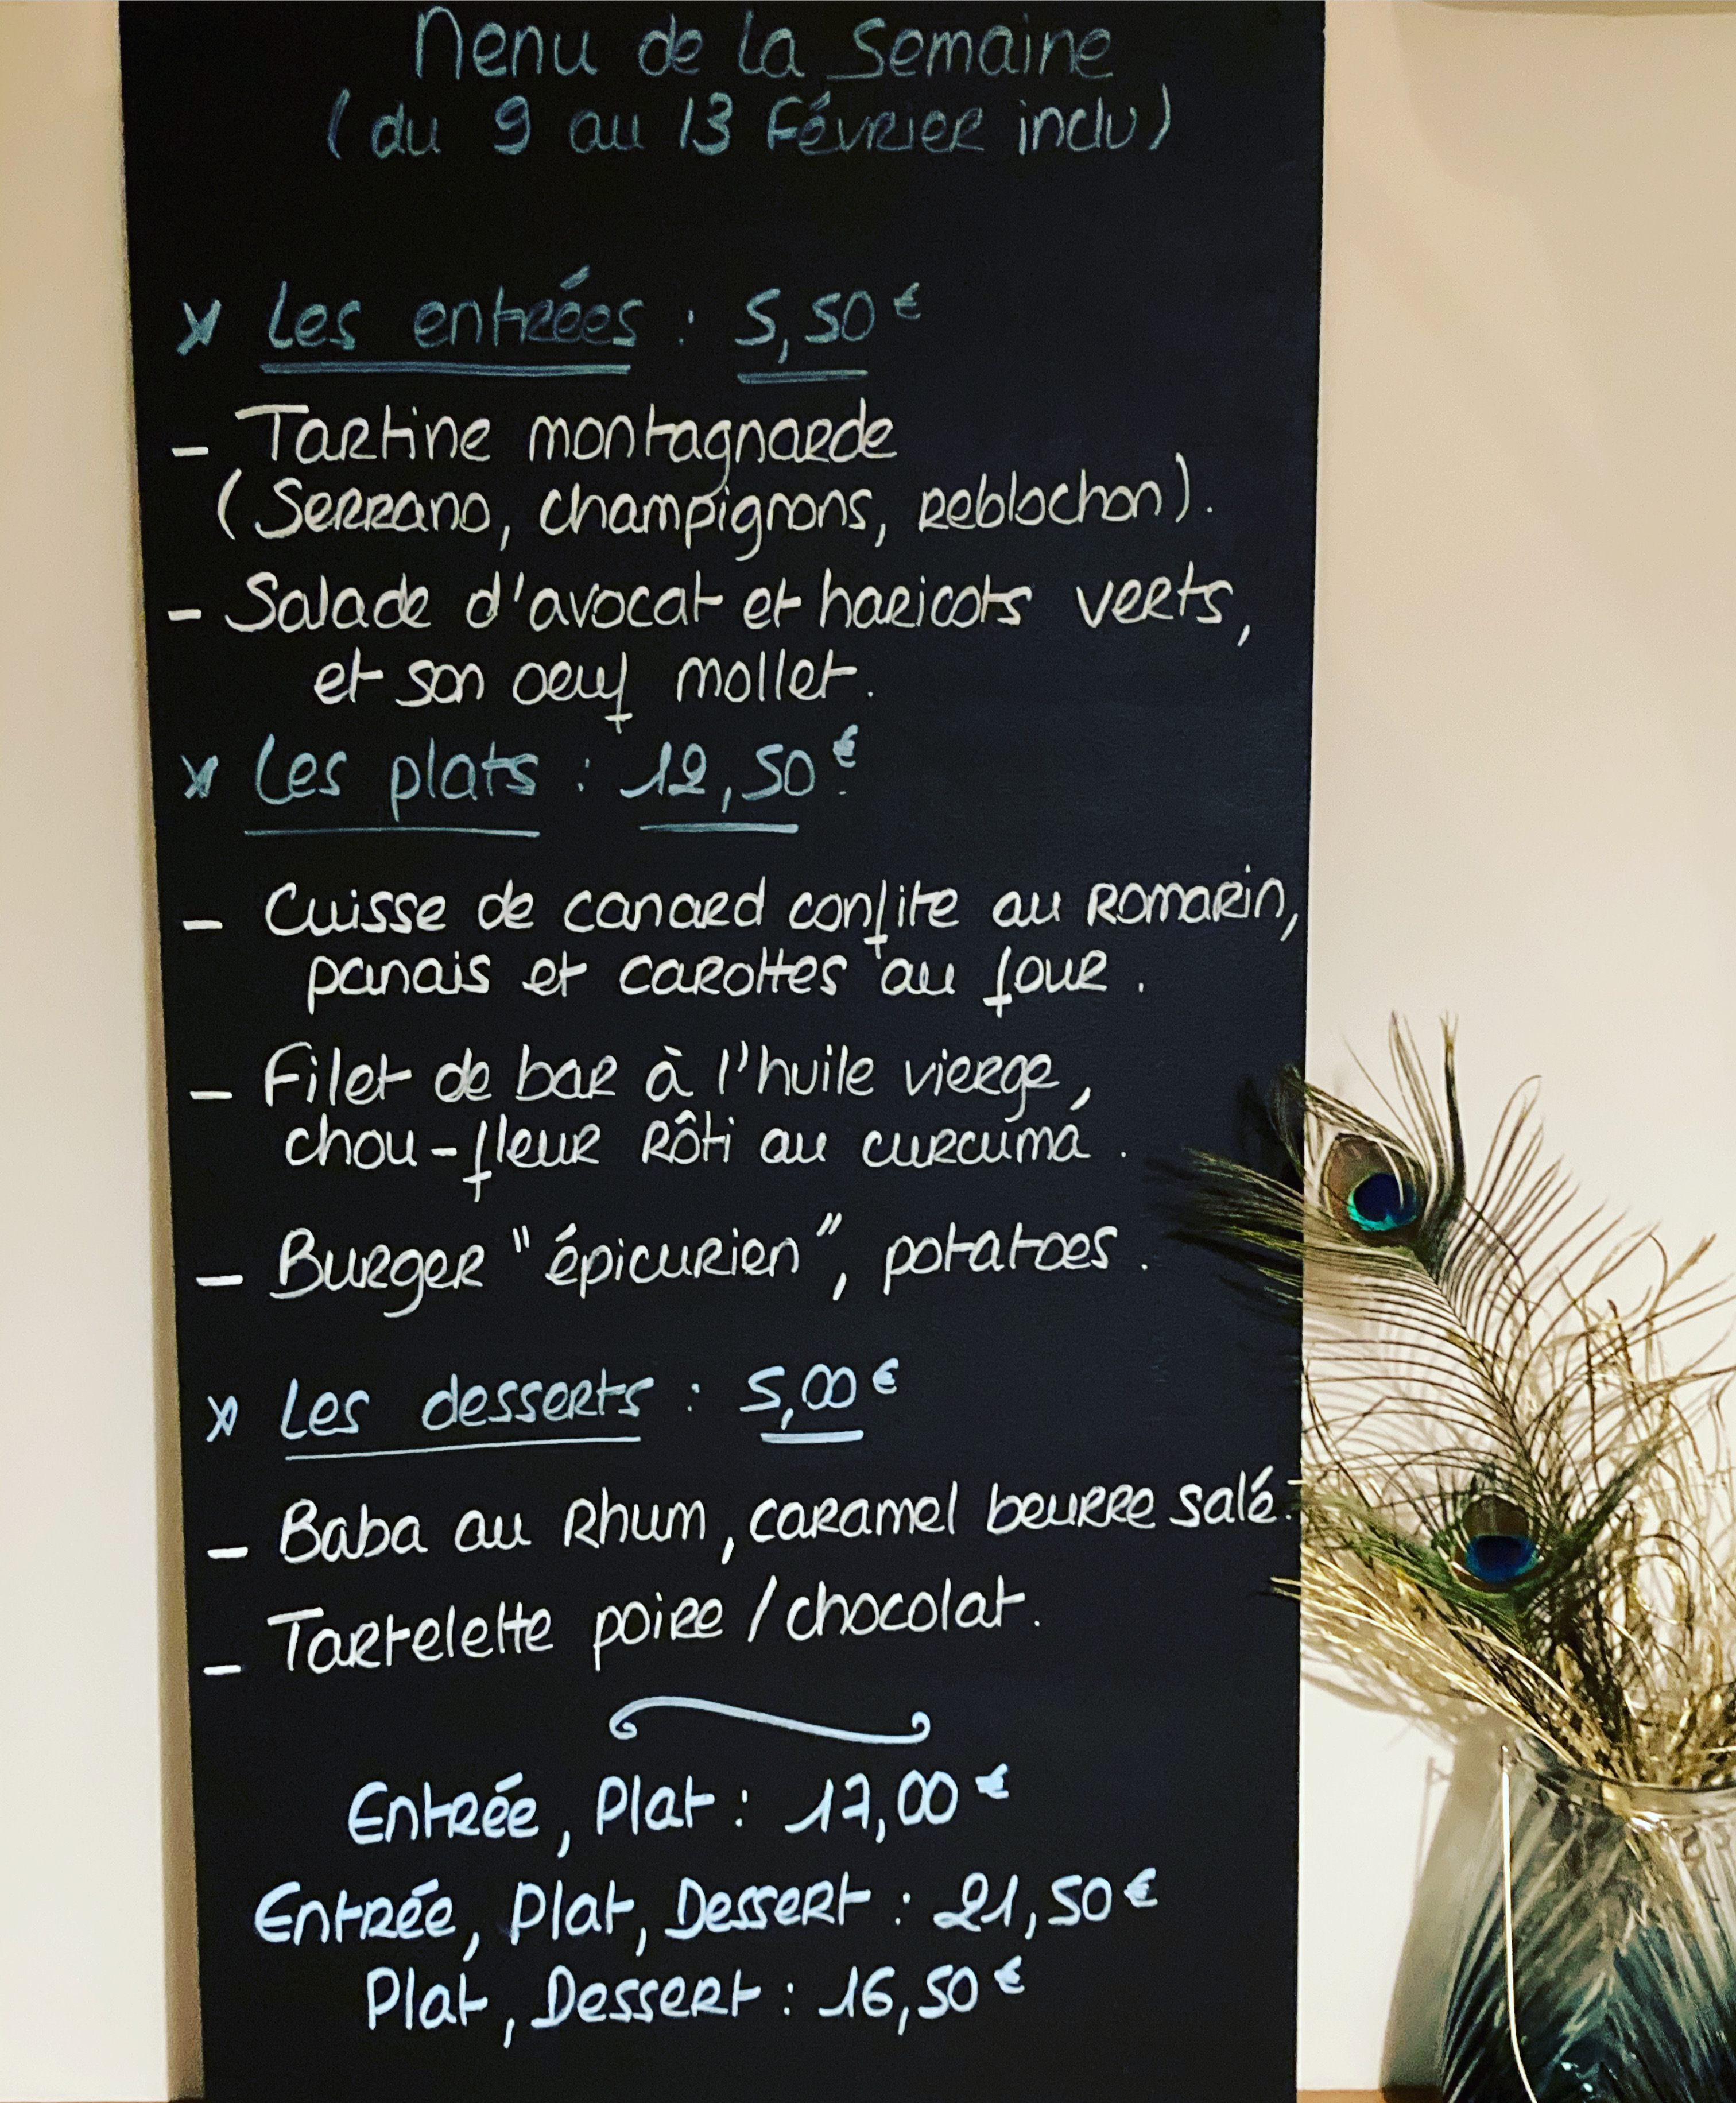 Menu de la Semaine
(du 9 au 13 Février inclu)
x Les entrées : 5,50€
- Tartine montagnarde
(Serrano, champignons, reblochon).
- Salade d'avocat et haricots verts,
et son oeuf mollet.
x Les plats : 12,50€
- Cuisse de canard confite au romarin,
panais et carottes au four.
- Filet de bar à l'huile vierge,
chou-fleur rôti au curcuma.
- Burger "épicurien", potatoes.
x Les desserts : 5,00€
- Baba au Rhum, caramel beurre salé.
- Tartelette poire / chocolat.
Entrée, Plat : 17,00€
Entrée, Plat, Dessert : 21,50€
Plat, Dessert : 16,50€